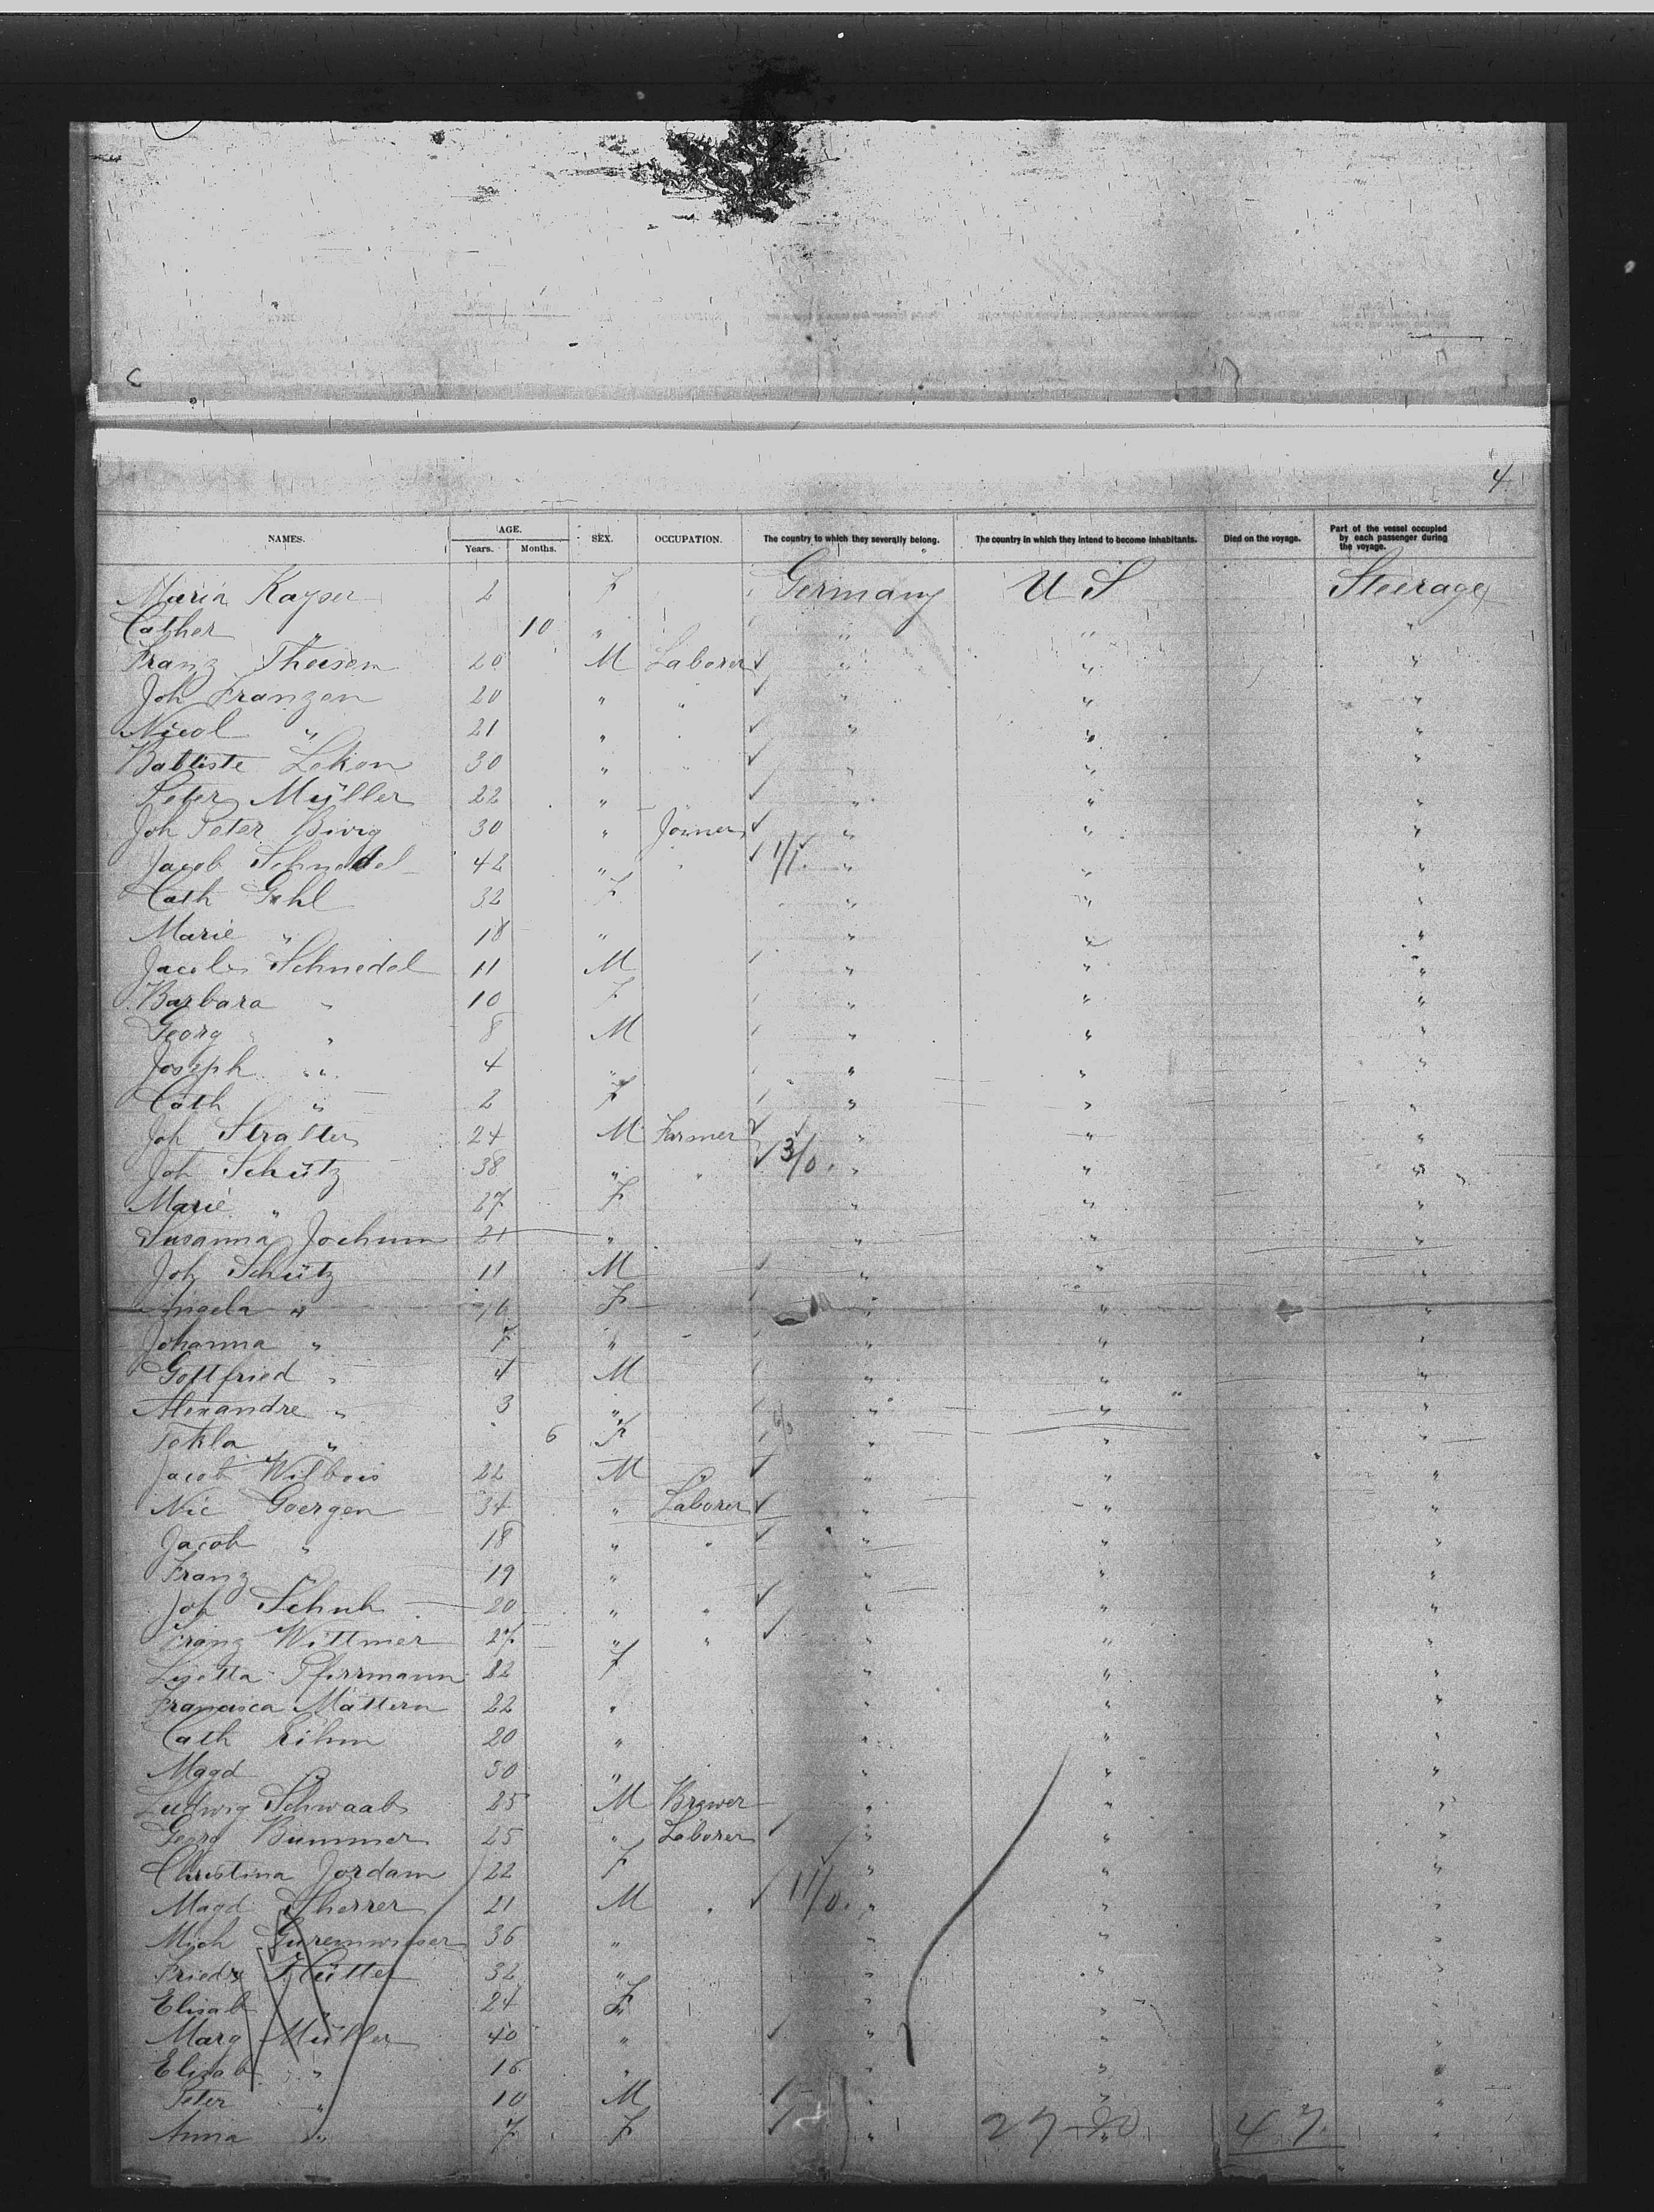 4
NAMES. AGE. Years. Months. SEX. OCCUPATION. The country to which they severally belong. The country in which they intend to become inhabitants. Died on the voyage. Part of the vessel occupied by each passenger during the voyage.
Maria Kayser 2 F Germany U S Steerage
Cather " 10 " " " "
Franz Theisen 20 M Laborer " " "
Joh Franzen 20 " " " " "
Nicol " 21 " " " " "
Battiste Lekon 30 " " " " "
Peter Müller 22 " " " "
Joh Peter 30 " Joiner " " "
Jacob Schnedel 42 " " 1/1. " " "
Cath Gehl 32 F " " "
Marie " 18 " " " "
Jacob Schnedel 11 M " " "
Barbara " 10 F " " "
Georg " 8 M " " "
Joseph " 4 " " " "
Cath " 2 F " " "
Joh Stratter 24 M Farmer " " "
Joh Schütz 38 " " 3/0. " " "
Marie " 27 F " " "
Susanna Jochum 21 " " " "
Joh Schütz 11 M " " "
Angela " 10 F " " "
Johanna " 7 " " " "
Gottfried " 4 M " " "
Alexandre " 3 " " " "
Tekla " 6 F " " "
Jacob Wilbois 22 M " " " "
Nic Goergen 34 " Laborer " " "
Jacob " 18 " " " " "
Franz " 19 " " " "
Joh Schuh 20 " " " " "
Franz Wittmer 27 " " " " "
Lisetta Pfirrmann 22 F " " "
Francisca Mattern 22 " " " "
Cath Rihm 20 " " " "
Magd " 50 " " " "
Ludwig Schwaab 25 M Brewer " " "
Georg Bummer 25 " Laborer " " "
Christina Jordam 22 F " " "
Magd Sherrer 21 M " 11/0. " " "
Mich 36 " " " "
Friedr Hütter 32 " " " "
Elisab " 24 F " " "
Marg Müller 40 " " " "
Elisab " 16 " " " "
Peter " 10 M " " "
Anna " 7 F " " "
27-20 47.